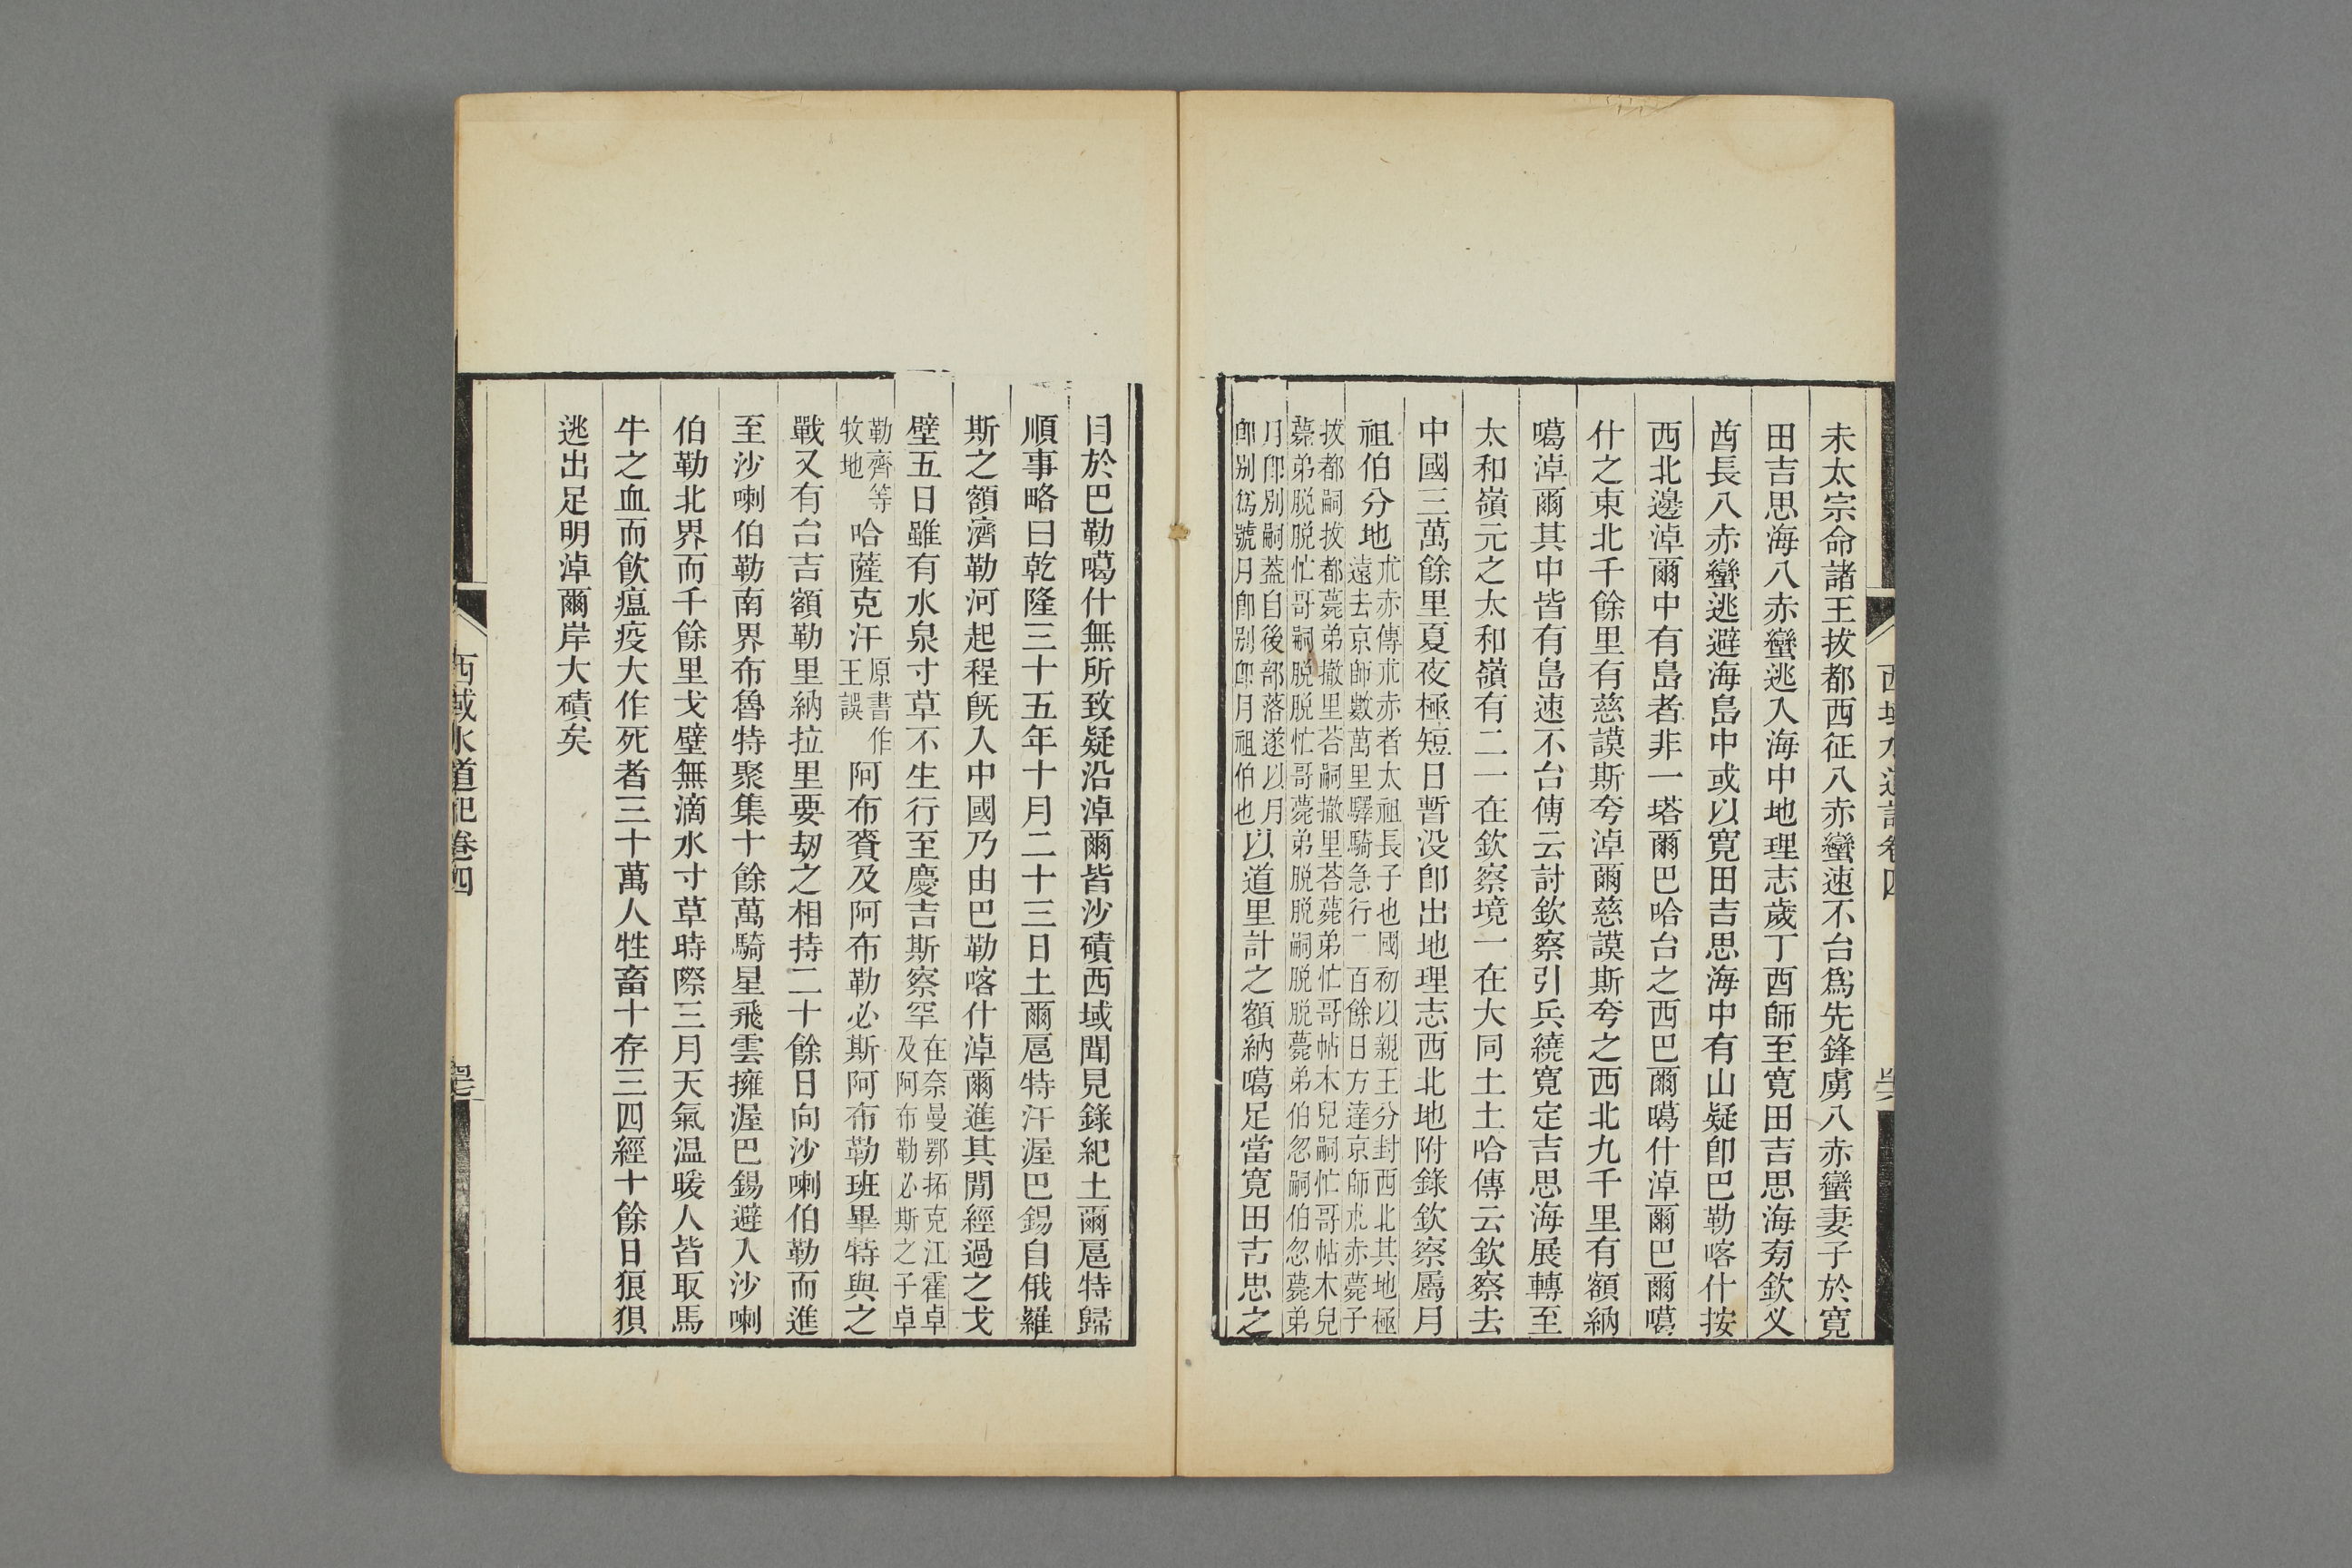 未太宗命諸王拔都西征八赤蠻速不台爲先鋒虜八赤蠻妻子於寛
田吉思海八赤蠻逃入海中地理志歲丁酉師至寛田吉思海旁欽义
酋長八赤蠻逃避海島中或以寛田吉思海中有山疑卽巴勒喀什按
西北邊淖爾中有島者非一塔爾巴哈台之西巴爾噶什淖爾巴爾噶
什之東北千餘里有慈謨斯夸淖爾慈謨斯夸之西北九千里有額納
噶淖爾其中皆有島速不台傳云討欽察引兵繞寛定吉思海展轉至
太和嶺元之太和嶺有二一在欽察境一在大同土土哈傳云欽察去
中國三萬餘里夏夜極短日暫没卽出地理志西北地附錄欽察屬月
祖伯分地
朮赤傳朮赤者太祖長子也國初以親王分封西北其地極
遠去京師數萬里驛騎急行二百餘日方達京師朮赤薨子
拔都嗣拔都薨弟撒里荅嗣撒里荅薨弟忙哥帖木兒嗣忙哥帖木兒
薨弟脱脱忙哥嗣脱脱忙哥薨弟脱脱嗣脱脱薨弟伯忽嗣伯忽薨弟
月卽別嗣蓋自後部落遂以月
卽別爲號月卽別卽月祖伯也
以道里計之額納噶足當寛田吉思之
目於巴勒噶什無所致疑沿淖爾皆沙磧西域聞見錄紀土爾扈特歸
順事略曰乾隆三十五年十月二十三日土爾扈特汗渥巴錫自俄羅
斯之額濟勒河起程旣入中國乃由巴勒喀什淖爾進其閒經過之戈
壁五日雖有水泉寸草不生行至慶吉斯察罕
在奈曼鄂拓克江霍卓
及阿布勒必斯之子卓
勒齊等
牧地
哈薩克汗
原書作
王誤
阿布賚及阿布勒必斯阿布勒班畢特與之
戰又有台吉額勒里納拉里要劫之相持二十餘日向沙喇伯勒而進
至沙喇伯勒南界布魯特聚集十餘萬騎星飛雲擁渥巴錫避入沙喇
伯勒北界而千餘里戈壁無滴水寸草時際三月天氣温暖人皆取馬
牛之血而飲瘟疫大作死者三十萬人牲畜十存三四經十餘日狼狽
逃出足明淖爾岸大磧矣
西域水道記卷四